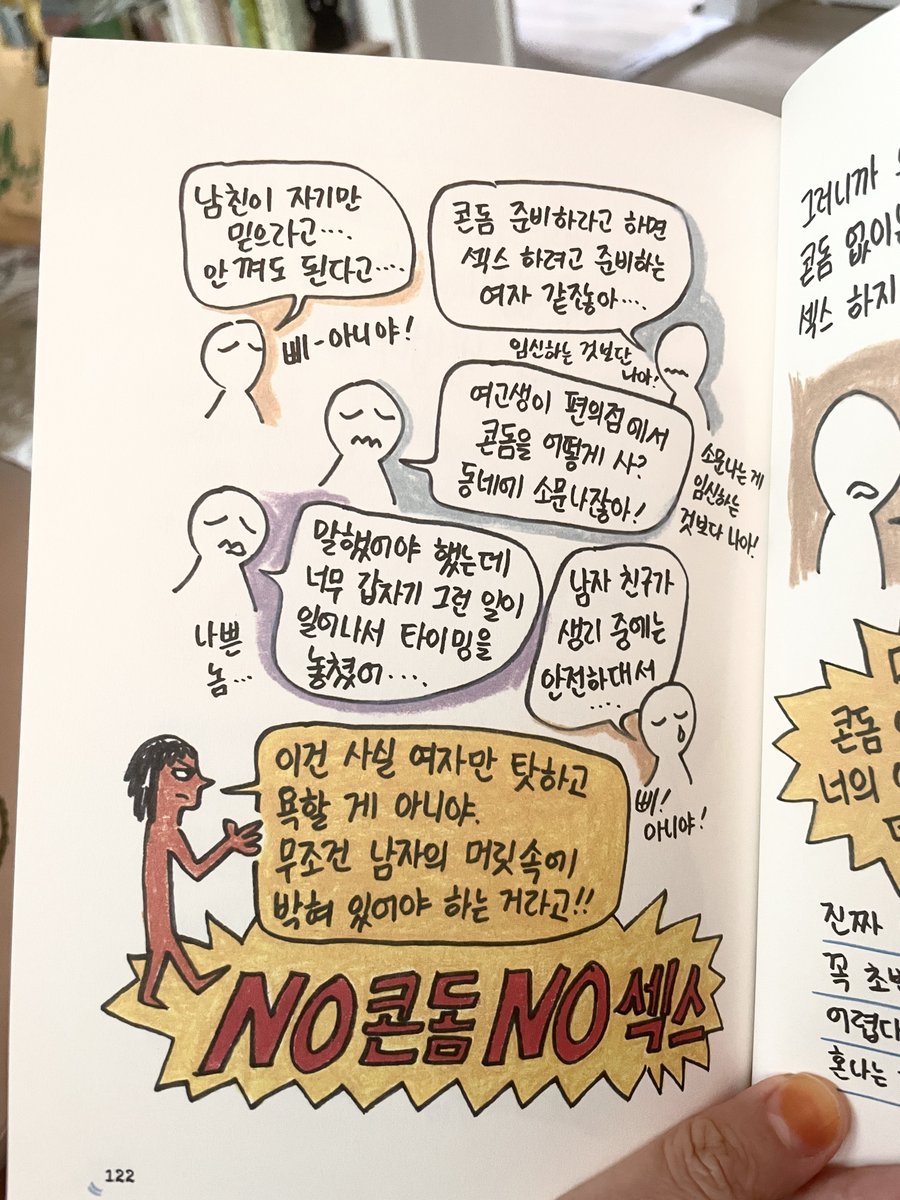 남친이 자기만
믿으라고‥‥
안 껴도 된다고‥‥
삐-아니야!
콘돔 준비하라고 하면
섹스 하려고 준비하는
여자 같잖아‥‥
임신하는 것보단
나아!
여고생이 편의점에서
콘돔을 어떻게 사?
동네에 소문나잖아!
소문나는 게
임신하는
것보다 나아!
말했어야 했는데
너무 갑자기 그런 일이
일어나서 타이밍을
놓쳤어‥‥
나쁜
놈‥‥
남자 친구가
생리 중에는
안전하대서
‥‥
삐!
아니야!
이건 사실 여자만 탓하고
욕할 게 아니야.
무조건 남자의 머릿속에
박혀 있어야 하는 거라고!!
NO콘돔 NO섹스
122
그러니까
콘돔 없이
섹스 하지
콘돔
너의
진짜
꼭
이렵다
혼나는